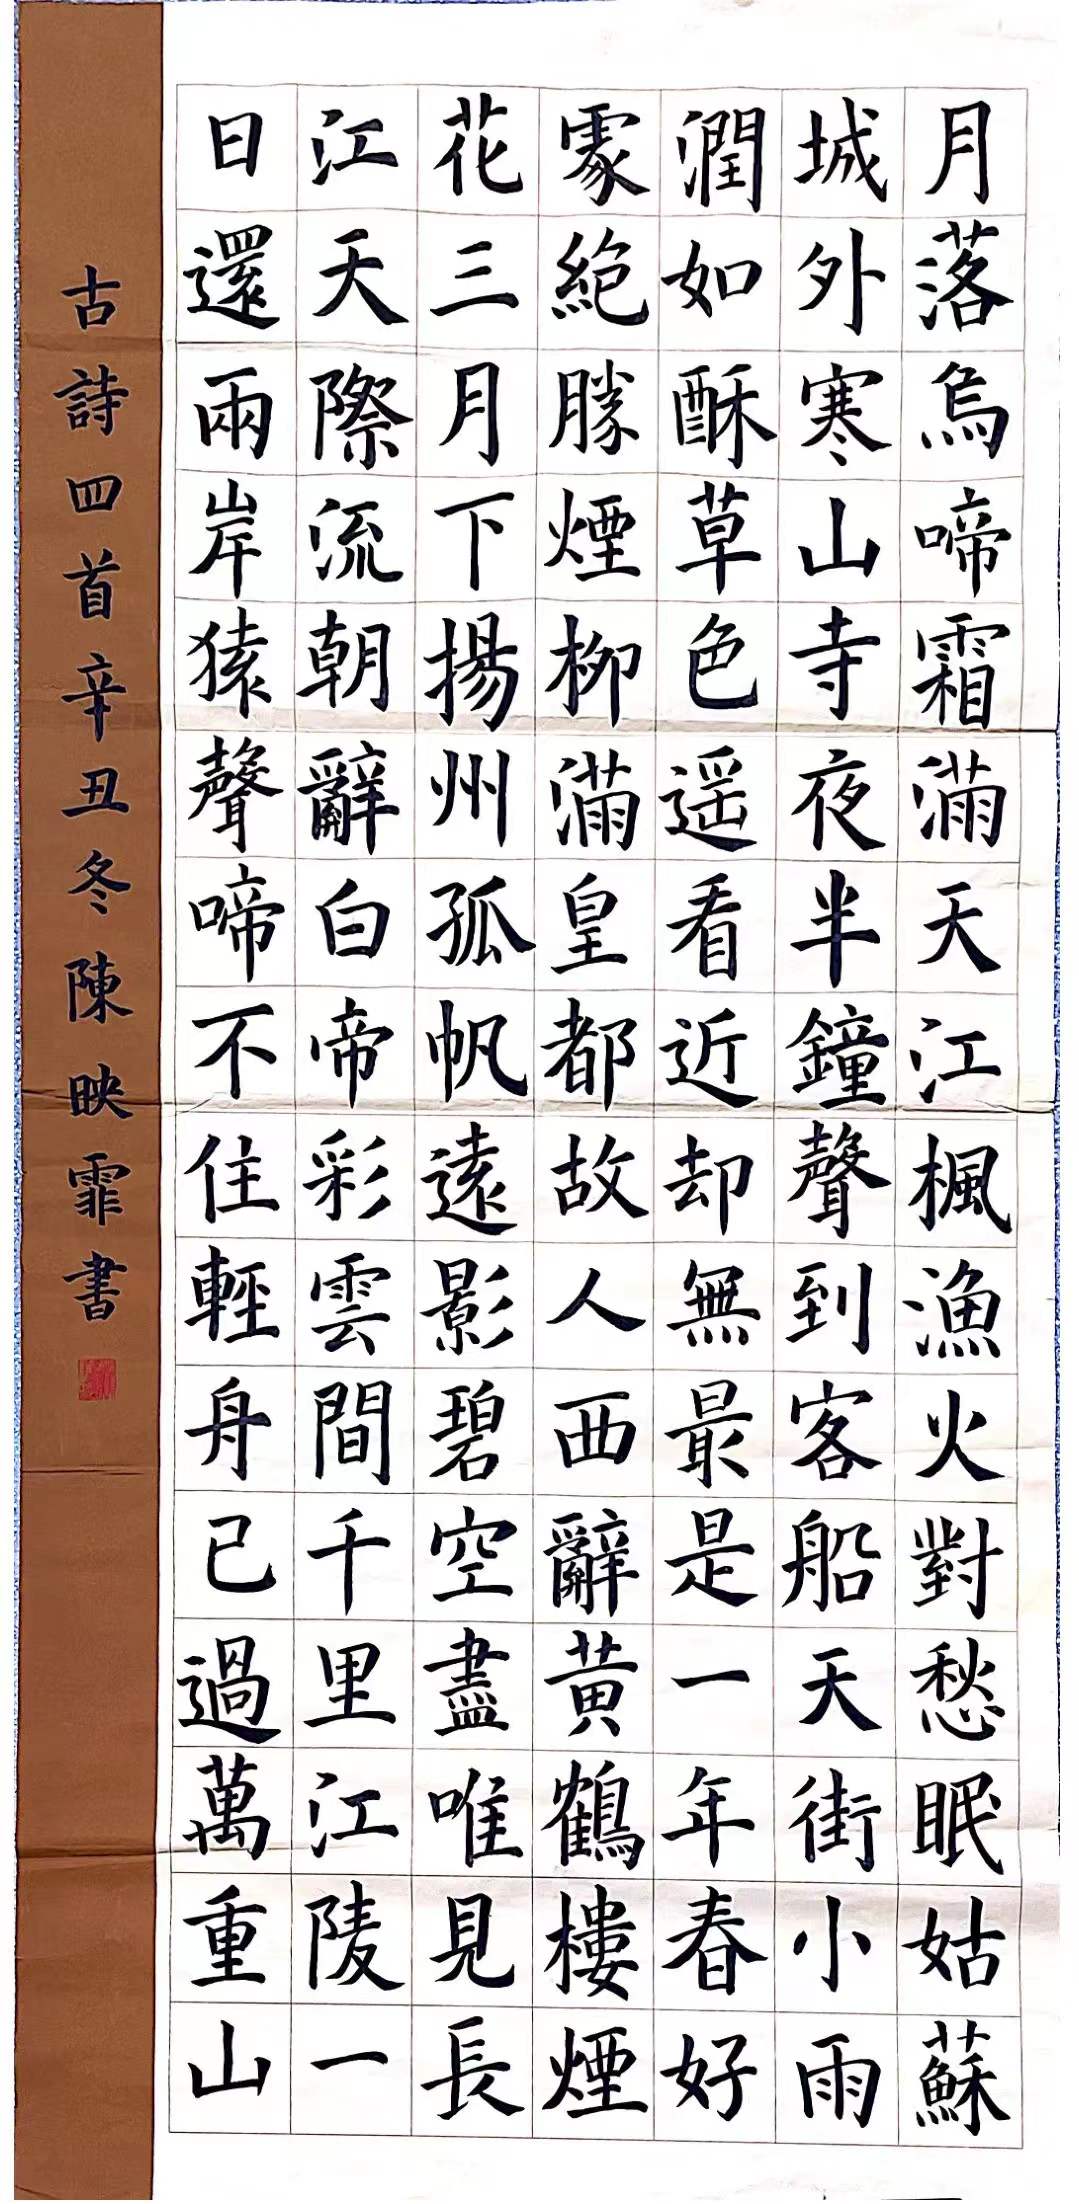 月落烏啼霜滿天江楓漁火對愁眠姑蘇
城外寒山寺夜半鐘聲到客船天街小雨
潤如酥草色遥看近却無最是一年春好
處絶勝煙柳滿皇都故人西辭黄鶴樓煙
花三月下揚州孤帆遠影碧空盡唯見長
江天際流朝辭白帝彩雲間千里江陵一
日還兩岸猿聲啼不住輕舟已過萬重山
古詩四首辛丑冬陳映霏書